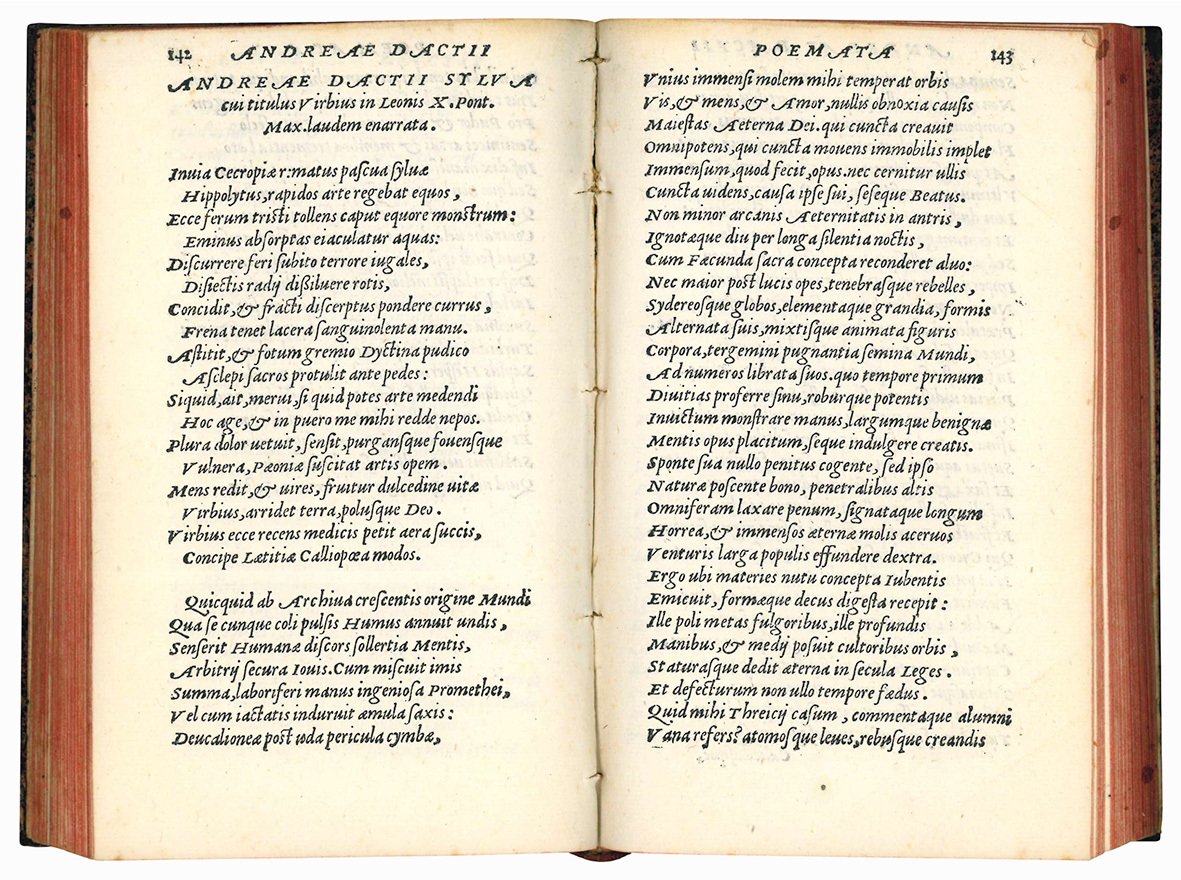 142 ANDREAE DACTII
ANDREAE DACTII SYLVA
cui titulus Virbius in Leonis X. Pont.
Max. laudem enarrata.
Inuia Cecropiæ rimatus pascua syluæ
Hippolytus, rapidos arte regebat equos,
Ecce ferum tristi tollens caput equore monstrum:
Eminus absorptas eiaculatur aquas:
Discurrere feri subito terrore iugales,
Disiectis radij dißiluere rotis,
Concidit, & fracti discerptus pondere currus,
Frena tenet lacera sanguinolenta manu.
Astitit, & fotum gremio Dyctina pudico
Asclepi sacros protulit ante pedes:
Siquid, ait, merui, si quid potes arte medendi
Hoc age, & in puero me mihi redde nepos.
Plura dolor uetuit, sensit, purgansque fouensque
Vulnera, Pæoniæ suscitat artis opem.
Mens redit, & uires, fruitur dulcedine uitæ
Virbius, arridet terra, polusque Deo.
Virbius ecce recens medicis petit aera succis,
Concipe Lætitiæ Calliopœa modos.
Quicquid ab Archiua crescentis origine Mundi
Qua se cunque coli pulsis Humus annuit undis,
Senserit Humanæ discors sollertia Mentis,
Arbitrij secura Iouis. Cum miscuit imis
Summa, laboriferi manus ingeniosa Promethei,
Vel cum iactatis induruit æmula saxis:
Deucalioneæ post uda pericula cymbæ,
POEMATA 143
Vnius immensi molem mihi temperat orbis
Vis, & mens, & Amor, nullis obnoxia causis
Maiestas Aeterna Dei. qui cuncta creauit
Omnipotens, qui cuncta mouens immobilis implet
Immensum, quod fecit, opus. nec cernitur ullis
Cuncta uidens, causa ipse sui, seseque Beatus.
Non minor arcanis Aeternitatis in antris,
Ignotæque diu per longa silentia noctis,
Cum Fæcunda sacra concepta reconderet aluo:
Nec maior post lucis opes, tenebrasque rebelles,
Sydereosque globos, elementaque grandia, formis
Alternata suis, mixtisque animata figuris
Corpora, tergemini pugnantia semina Mundi,
Ad numeros librata suos. quo tempore primum
Diuitias proferre sinu, roburque potentis
Inuictum monstrare manus, largumque benignæ
Mentis opus placitum, seque indulgere creatis.
Sponte sua nullo penitus cogente, sed ipso
Naturæ poscente bono, penetralibus altis
Omniferam laxare penum, signataque longum
Horrea, & immensos æternæ molis aceruos
Venturis larga populis effundere dextra.
Ergo ubi materies nutu concepta Iubentis
Emicuit, formæque decus digesta recepit:
Ille poli metas fulgoribus, ille profundis
Manibus, & medij posuit cultoribus orbis,
Staturasque dedit æterna in secula Leges.
Et defecturum non ullo tempore fædus.
Quid mihi Threicij casum, commentaque alumni
Vana refers? atomosque leues, rebusque creandis